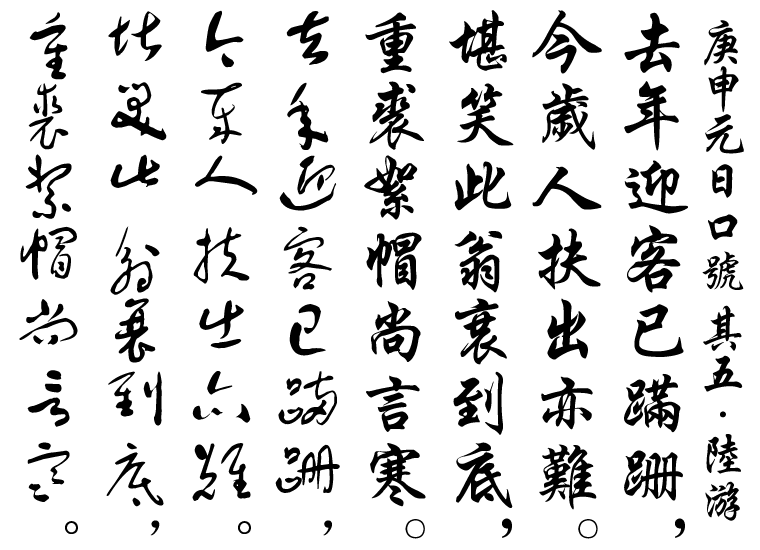 庚申元日口號 其五·陸游
去年迎客已蹣跚，
今歲人扶出亦難。
堪笑此翁衰到底，
重裘絮帽尚言寒。
去年迎客已蹣跚，
今歲人扶出亦難。
堪笑此翁衰到底，
重裘絮帽尚言寒。